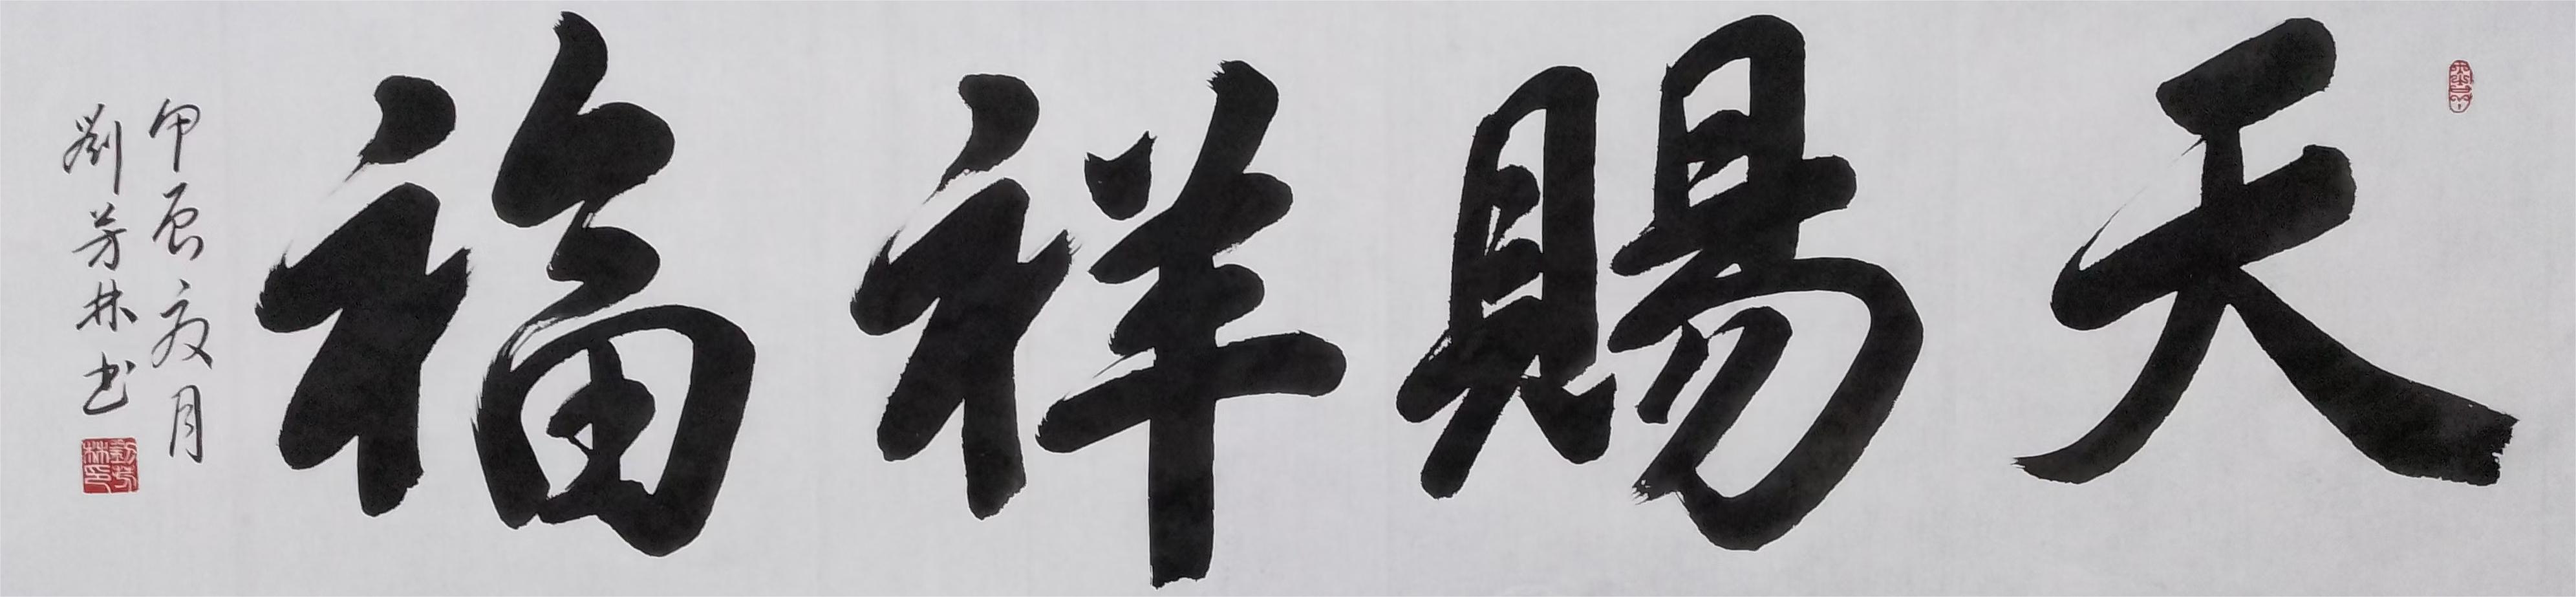 天賜祥福
甲辰夏月
劉芳林书
劉芳林印